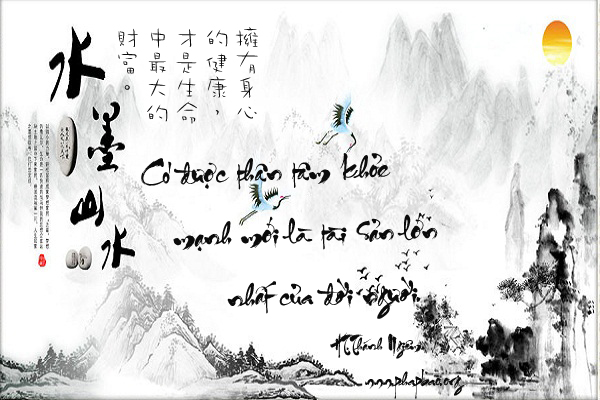 擁有身心
的健康，
才是生命
中最大的
財富。
水墨山水
Có được thân tâm khỏe
mạnh mới là tài sản lớn
nhất của đời người.
HT Thánh Nghiêm
www.phapbao.org